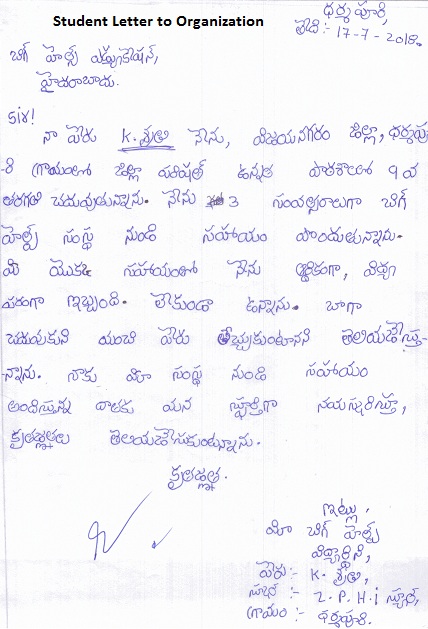 Student Letter to Organization
ధర్మపూరి,
తేది:- 17-7-2018.
బిగ్ హెల్ప్ ఎడ్యుకేషన్,
హైదరాబాదు.
Sir!
నా పేరు K. శృతి నేను, విజయనగరం జిల్లా, ధర్మపు
-రి గ్రామంలో జిల్లా పరిషత్ ఉన్నత పాఠశాలలో 9 వ
తరగతి చదువుతున్నాను. నేను 3 సంవత్సరాలుగా బిగ్
హెల్ప్ సంస్థ నుండి సహాయం పొందుతున్నాను.
మీ యొక్క సహాయంలో నేను ఆర్థికంగా, విద్యా
పరంగా ఇబ్బంది. లేకుండా ఉన్నాను. బాగా
చదువుకుని మంచి పేరు తెచ్చుకుంటానని తెలియజేస్తు-
న్నాను. నాకు మీ సంస్థ నుండి సహాయం
అందిస్తున్న దాతకు మన స్ఫూర్తిగా నమస్కరిస్తూ,
కృతజ్ఞతలు తెలియజేసుకుంటున్నాను.
కృతజ్ఞత.
ఇట్లు,
మీ బిగ్ హెల్ప్
విద్యార్థిని,
పేరు:- K. శృతి,
స్కూల్:- Z.P.H. స్కూల్,
గ్రామం:- ధర్మపూరి.